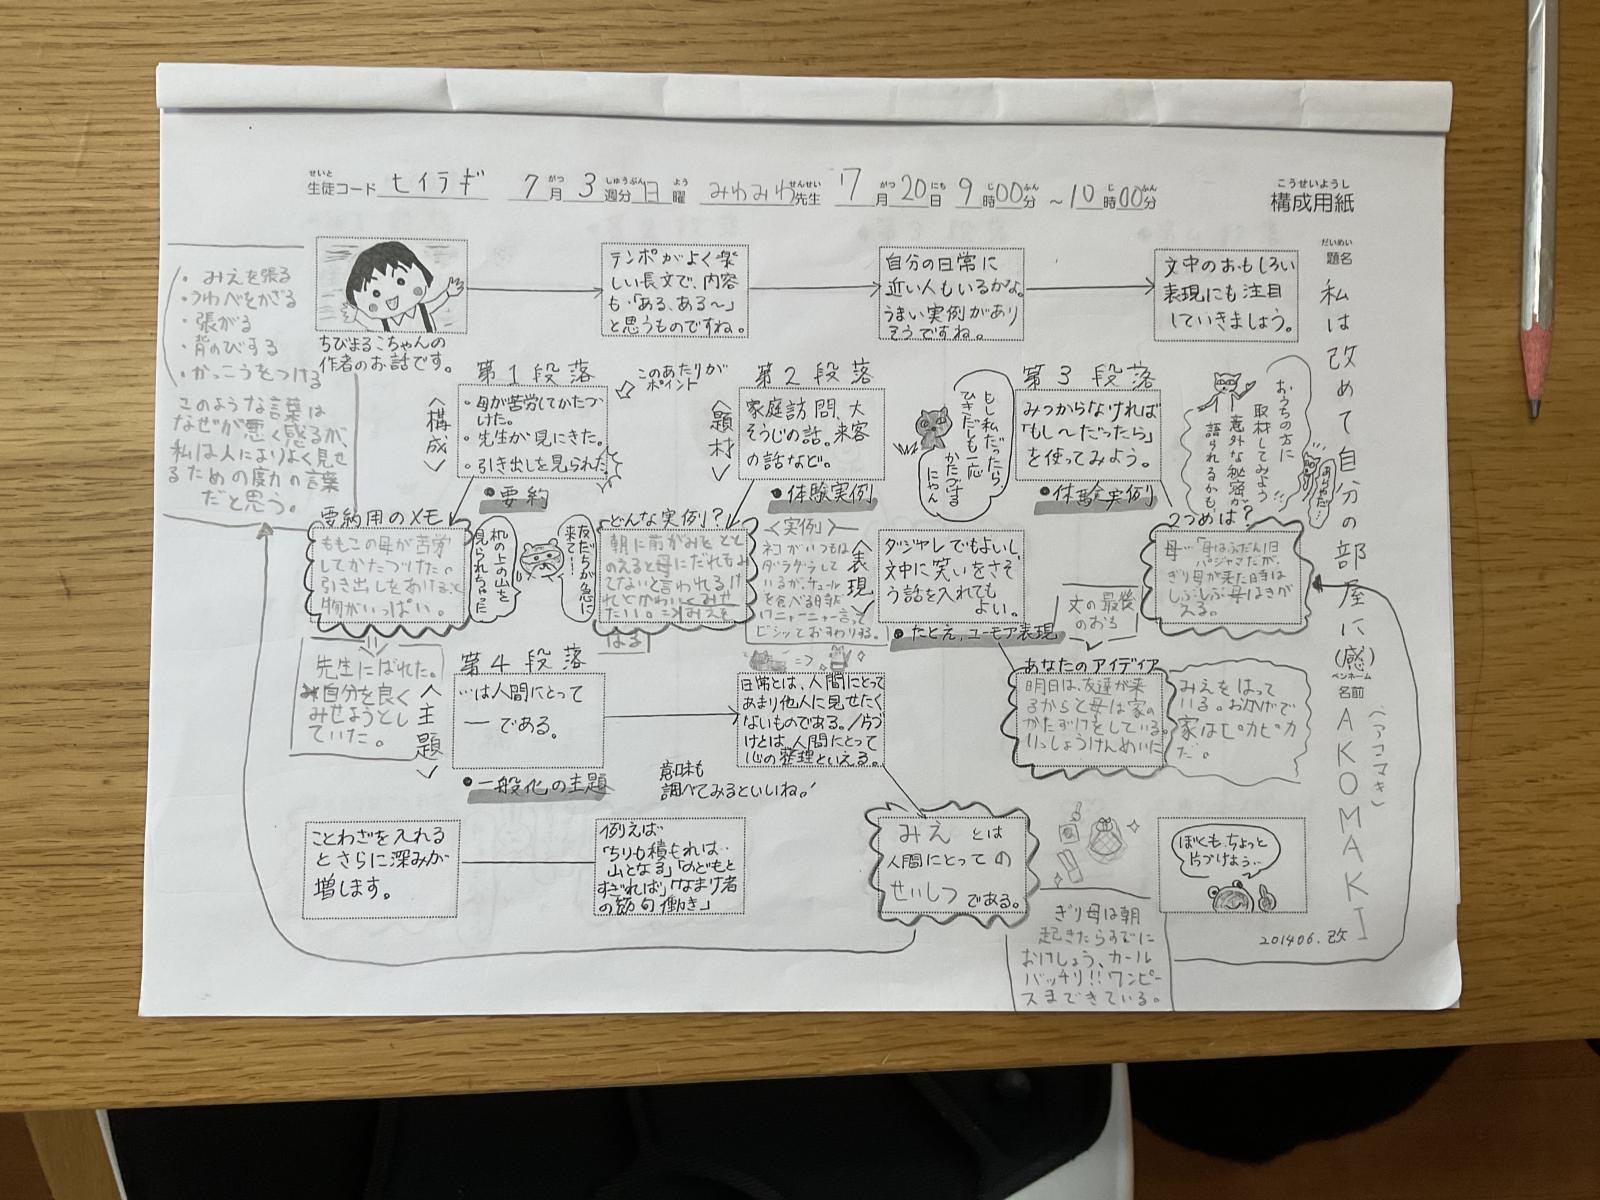 せいと
生徒コード セイラギ 7月 3週分 日曜 みわみわ先生 7月20日 9時00分 ～10時00分
こうせいようし
構成用紙
だいめい
題名
私は改めて自分の部屋に(感)
ペンネーム
名前
AKOMAKI
(アコマキ)
ちびまるこちゃんの
作者のお話です。
テンポがよく楽
しい長文で、内容
も「ある、ある～」
と思うものですね。
自分の日常に
近い人もいるかな。
うまい実例があり
そうですね。
文中のおもしろい
表現にも注目
していきましょう。
・みえを張る
・うわべをかざる
・張がる
・背のびする
・かっこうをつける
このような言葉は
なぜか悪く感るが、
私は人によりよく見せ
るための努力の言葉
だと思う。
〈構成〉
第1段落
このあたりが
ポイント
・母が苦労してかたづ
けた。
・先生が見にきた。
・引き出しを見られた。
●要約
〈題材〉
第2段落
家庭訪問、大
そうじの話。来客
の話など。
●体験実例
もし私だったら
ひきだしも一応
かたづける
にゃん
第3段落
みつからなければ
「もし～だったら」
を使ってみよう。
●体験実例
おうちの方に
取材してみよう
意外な秘密が
語られるかも
要約用のメモ
ももこの母が苦労
してかたづけた。
引き出しをあけると
物がいっぱい。
机の上の山を
見られちゃった
友だちが急に
来て…
どんな実例？
朝に前がみをとと
のえると母にだれもみ
てないと言われるけ
れどかわいくみせ
たい。=>みえを
はる
〈実例〉
ネコがいつもは
ダラダラして
いるが、チュールを
食べる時だ
けニャーニャー言って
ピシッとおすわりする。
〈表現〉
ダジャレでもよいし、
文中に笑いをさそ
う話を入れても
よい。
●たとえ、ユーモア表現
文の最後
のおち
2つめは？
母…「母はふだん1日
パジャマだが、
ぎり母が来た時は
しぶしぶ母はきが
える。
先生にばれた。
自分を良く
みせようとし
ていた。
〈主題〉
第4段落
…は人間にとって
― である。
●一般化の主題
日常とは、人間にとって
あまり他人に見せたく
ないものである。/片づ
けとは、人間にとって
心の整理といえる。
意味も
調べてみるといいね！
あなたのアイディア
明日は、友達が来
るからと母は家の
かたずけをしている。
いっしょうけんめいに
みえをはって
いる。おかげで
家はピカピカ
だ。
ことわざを入れる
とさらに深みが
増します。
例えば
「ちりも積もれば…
山となる」「のどもと
すぎれば」「なまけ者
の節句働き」
みえとは
人間にとっての
せいしつである。
ぼくも、ちょっと
片づけよう…
201406.改
ぎり母は朝
起きたらすでに
おけしょう、カール
バッチリ!!ワンピー
スまできている。